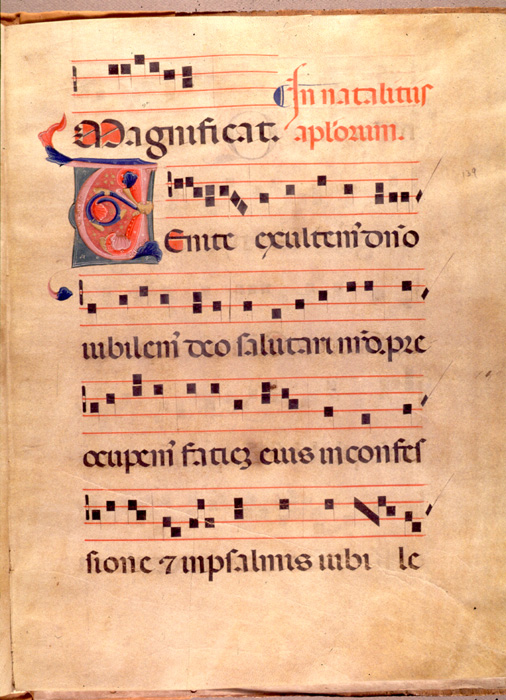 In natalitiis
Magnificat. aplorum.
Uenite exultem dno
iubilem deo salutari nro. pre
ocupem faciez eius in confes
sione ⁊ inpsalmis iubi le
139